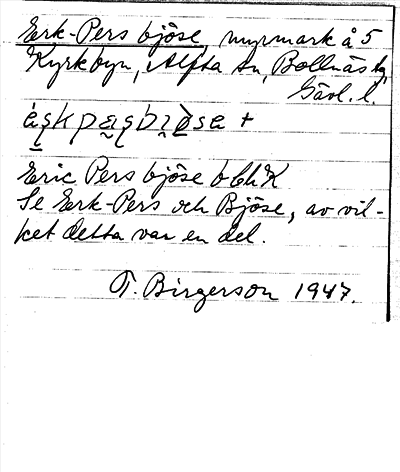 Erk-Pers bjöse, myrmark å 5
Kyrkbyn, Alfta sn, Bollnäs tg,
Gävl. l.
Eric Pers bjöse
Se Erk-Pers och Bjöse, av vil-
ket detta var en del.
T. Birgerson 1947.